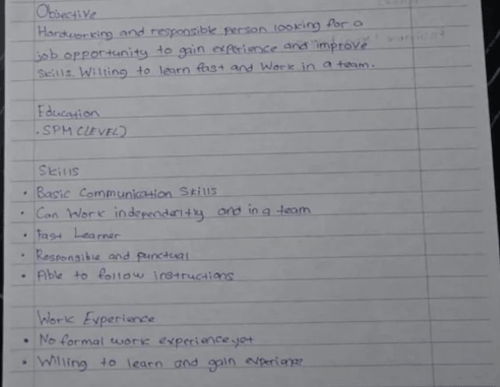 Objective
Hardworking and responsible person looking for a
job opportunity to gain experience and improve
skills. Willing to learn fast and Work in a team.
Education
. SPM (LEVEL)
Skills
• Basic Communication Skills
• Can Work independently and in a team
• Fast Learner
• Responsible and punctual
• Able to follow instructions
Work Experience
• No formal work experience yet
• Willing to learn and gain experience